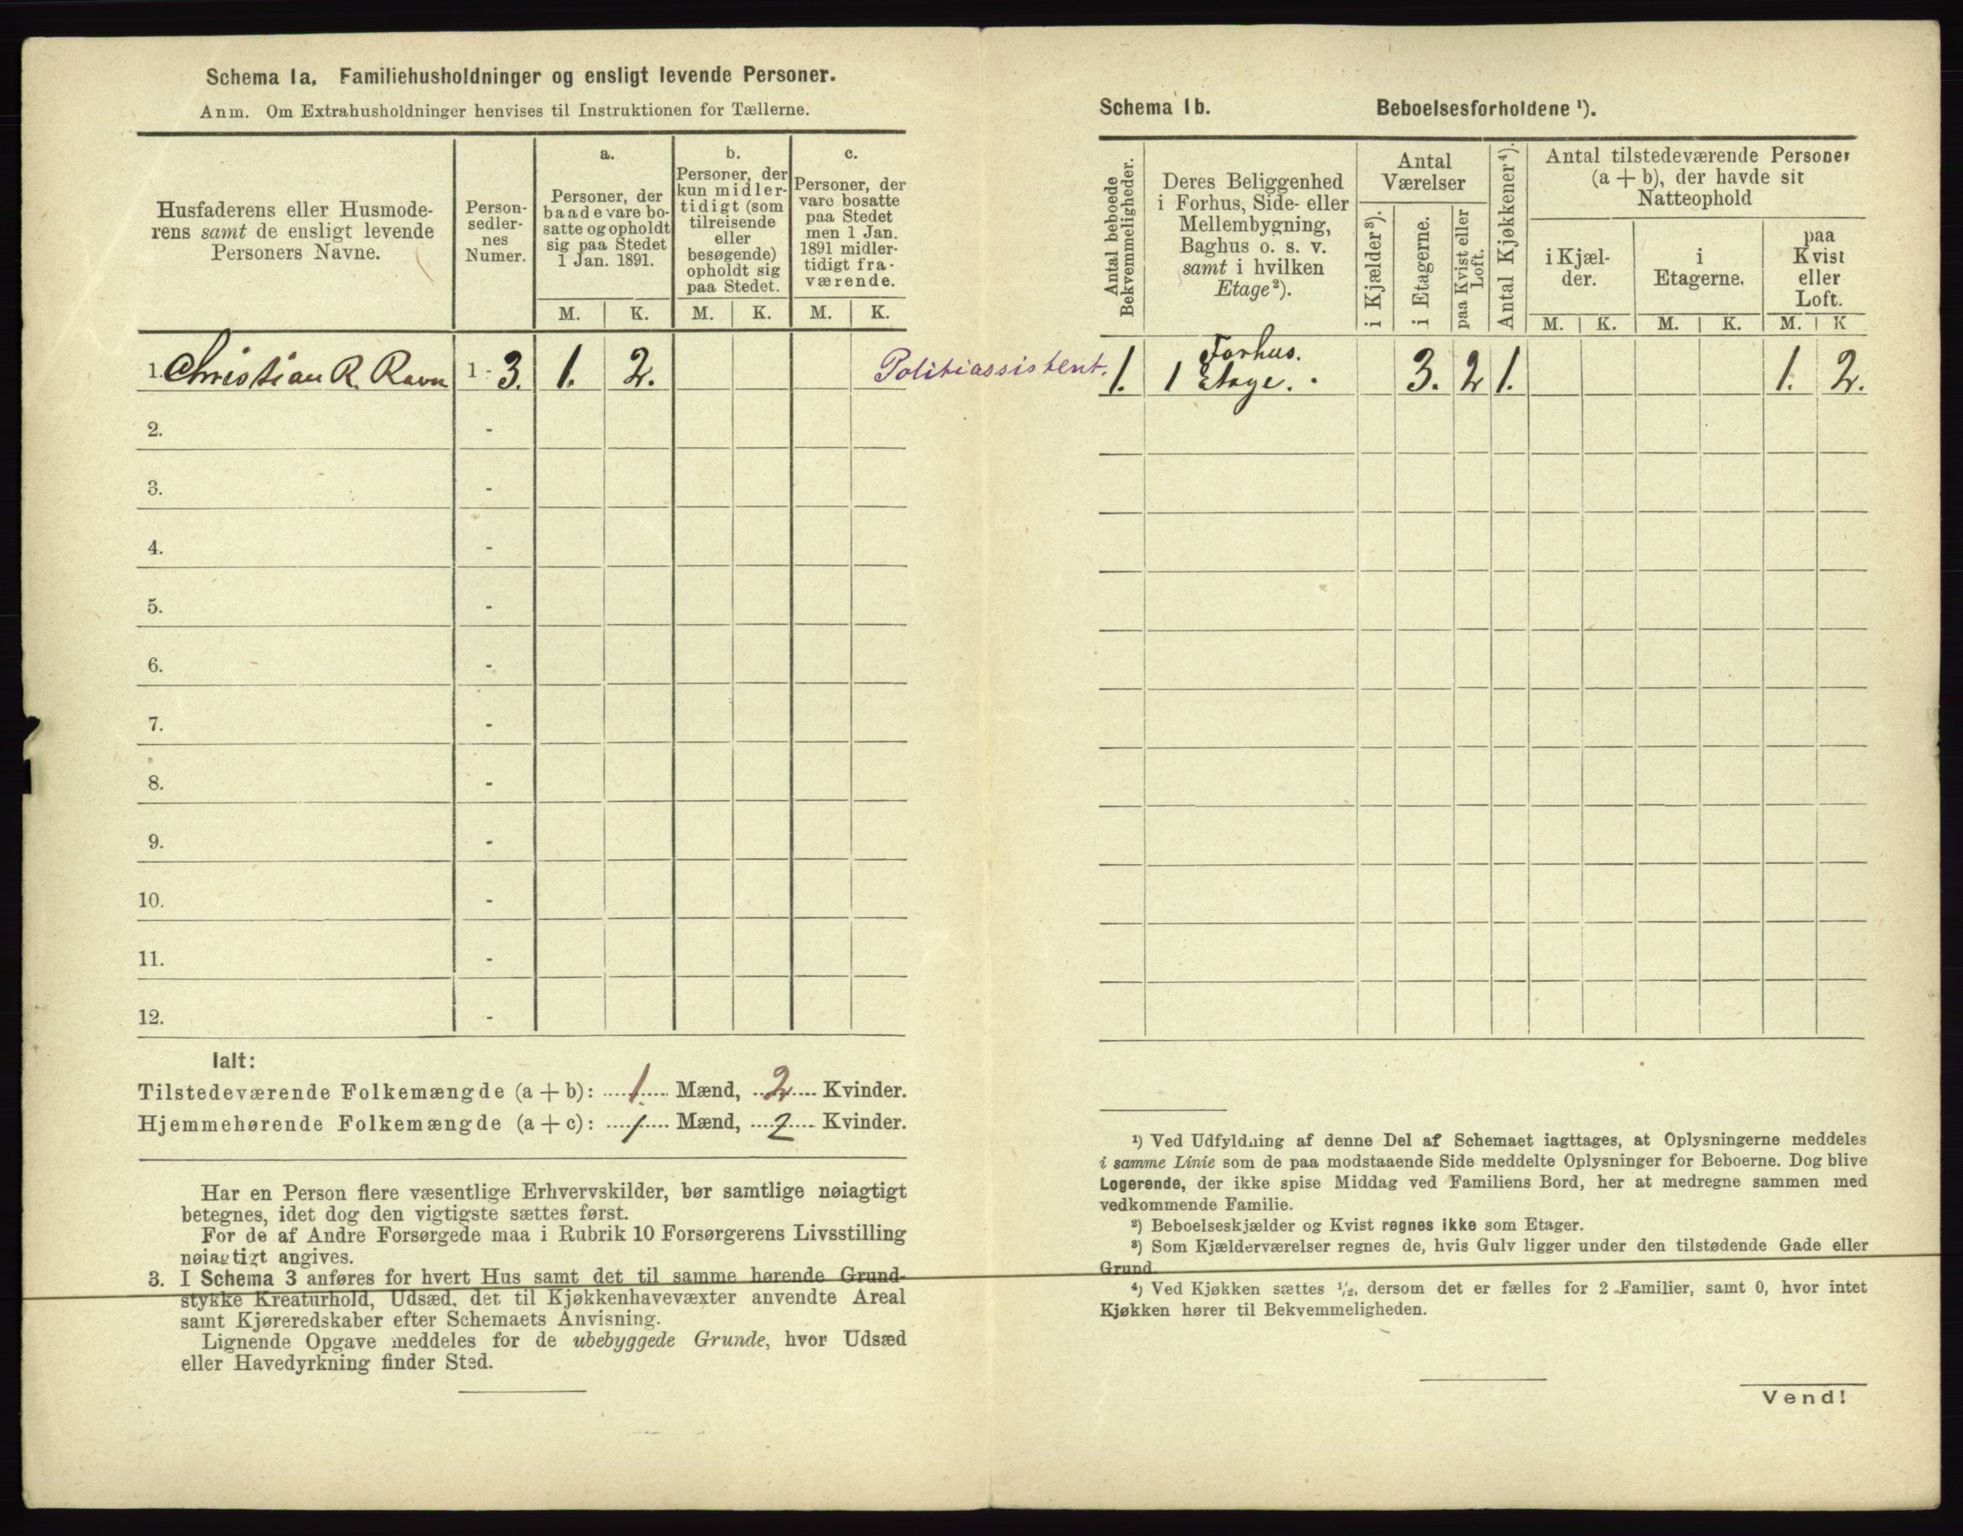 Schema 1a. Familiehusholdninger og ensligt levende Personer.
Anm. Om Extrahusholdninger henvises til Instruktionen for Tællerne.
Husfaderens eller Husmode-
rens samt de ensligt levende
Personers Navne.
Person-
sedler-
nes
Numer.
a.
Personer, der
baade vare bo-
satte og opholdt
sig paa Stedet
1 Jan. 1891.
b.
Personer, der
kun midler-
tidigt (som
tilreisende
eller
besøgende)
opholdt sig
paa Stedet.
c.
Personer, der
vare bosatte
paa Stedet
men 1 Jan.
1891 midler-
tidigt fra-
værende.
M. K. M. K. M. K.
1. Christian R. Ravn 1 - 3. 1. 2. Politiassistent.
2. -
3. -
4. -
5. -
6. -
7. -
8. -
9. -
10. -
11. -
12. -
Ialt:
Tilstedeværende Folkemængde (a + b): 1. Mænd, 2 Kvinder.
Hjemmehørende Folkemængde (a + c): 1 Mænd, 2 Kvinder.
Har en Person flere væsentlige Erhvervskilder, bør samtlige nøiagtigt
betegnes, idet dog den vigtigste sættes først.
For de af Andre Forsørgede maa i Rubrik 10 Forsørgerens Livsstilling
nøiagtigt angives.
3. I Schema 3 anføres for hvert Hus samt det til samme hørende Grund-
stykke Kreaturhold, Udsæd, det til Kjøkkenhavevæxter anvendte Areal
samt Kjøreredskaber efter Schemaets Anvisning.
Lignende Opgave meddeles for de ubebyggede Grunde, hvor Udsæd
eller Havedyrkning finder Sted.
Schema 1b. Beboelsesforholdene ¹).
Antal beboede
Bekvemmeligheder.
Deres Beliggenhed
i Forhus, Side- eller
Mellembygning,
Baghus o. s. v.
samt i hvilken
Etage²).
Antal
Værelser
i Kjælder³).
i Etagerne.
paa Kvist eller
Loft.
Antal Kjøkkener⁴).
Antal tilstedeværende Personer
(a + b), der havde sit
Natteophold
i Kjæl-
der.
i
Etagerne.
paa
Kvist
eller
Loft.
M. K. M. K. M. K
1. 1 Forhus. Etage. 3. 2 1. 1. 2.
¹) Ved Udfyldning af denne Del af Schemaet iagttages, at Oplysningerne meddeles
i samme Linie som de paa modstaaende Side meddelte Oplysninger for Beboerne. Dog blive
Logerende, der ikke spise Middag ved Familiens Bord, her at medregne sammen med
vedkommende Familie.
²) Beboelseskjælder og Kvist regnes ikke som Etager.
³) Som Kjælderværelser regnes de, hvis Gulv ligger under den tilstødende Gade eller
Grund.
⁴) Ved Kjøkken sættes ½, dersom det er fælles for 2 Familier, samt 0, hvor intet
Kjøkken hører til Bekvemmeligheden.
Vend!